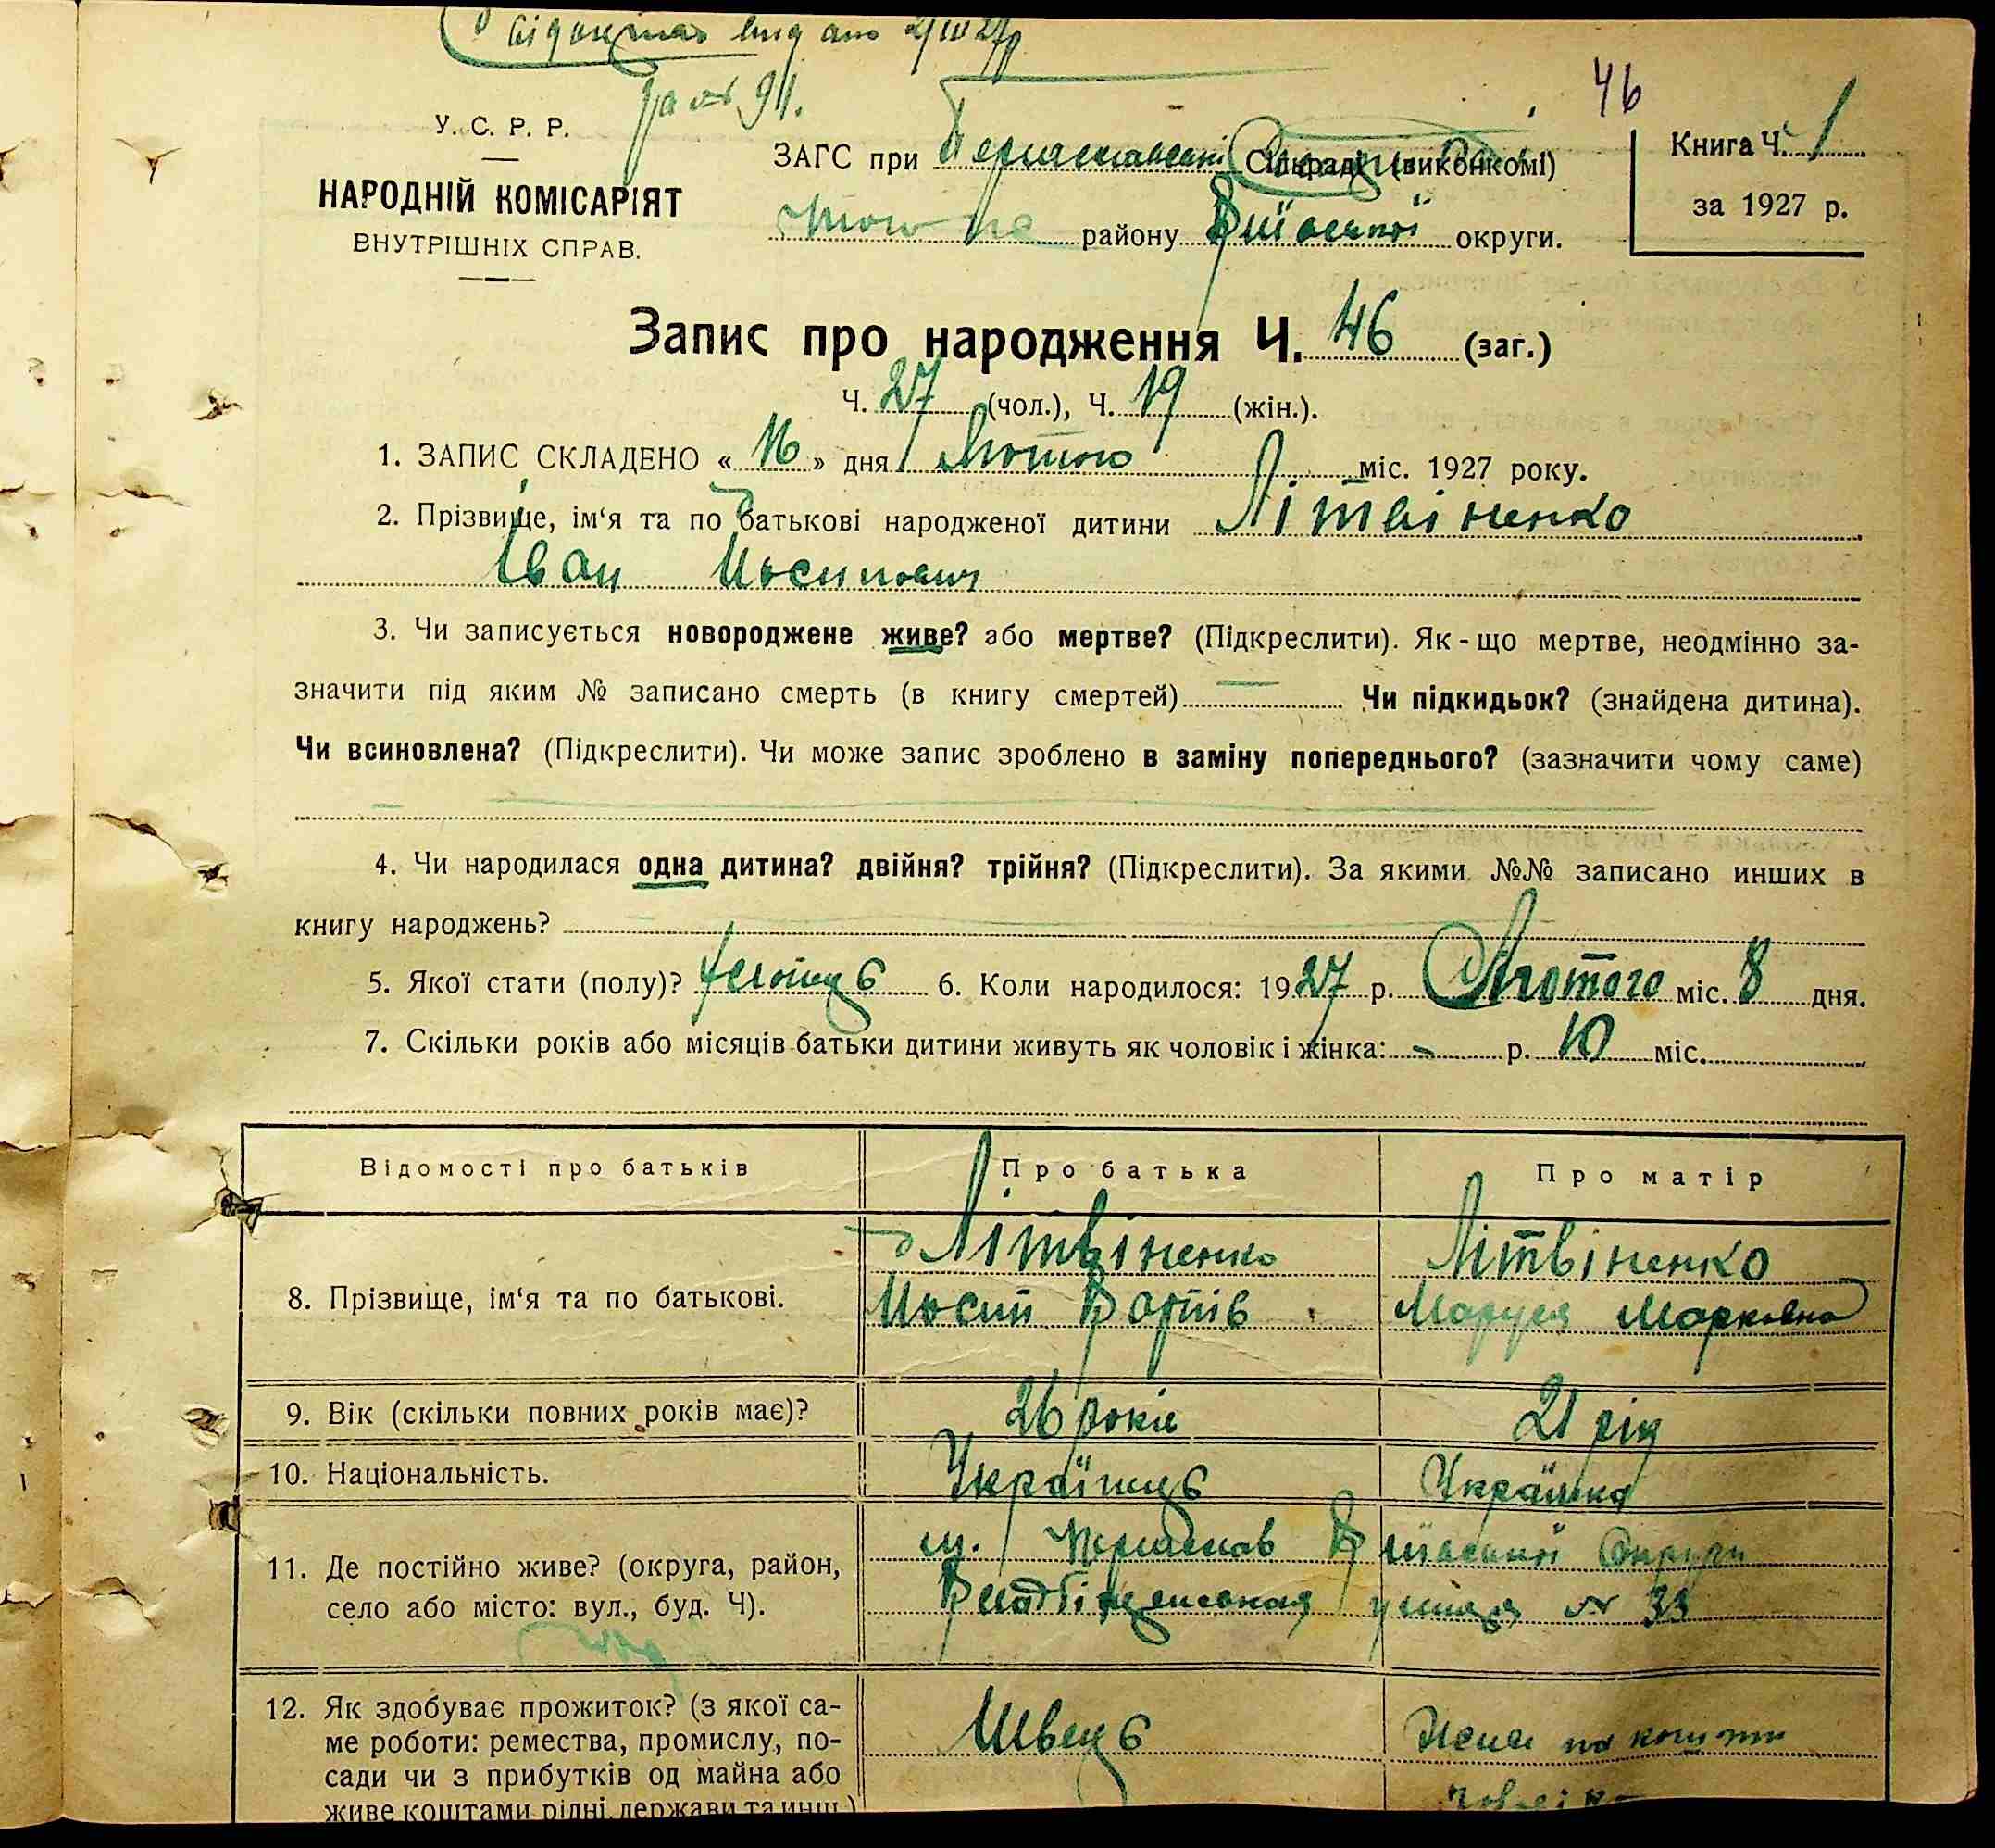 видано 2/III 27р
за № 91.
46
У. С. Р. Р.
НАРОДНІЙ КОМІСАРІЯТ
ВНУТРІШНІХ СПРАВ.
ЗАГС при Переяславській Сільраді (виконкомі)
того же району Київської округи.
Книга Ч. 1
за 1927 р.
Запис про народження Ч. 46 (заг.)
Ч. 27 (чол.), Ч. 19 (жін.).
1. ЗАПИС СКЛАДЕНО « 16 » дня Лютого міс. 1927 року.
2. Прізвище, ім‘я та по батькові народженої дитини Літвіненко
Іван Йосипович
3. Чи записується новороджене живе? або мертве? (Підкреслити). Як-що мертве, неодмінно за-
значити під яким № записано смерть (в книгу смертей) — Чи підкидьок? (знайдена дитина).
Чи всиновлена? (Підкреслити). Чи може запис зроблено в заміну попереднього? (зазначити чому саме)
4. Чи народилася одна дитина? двійня? трійня? (Підкреслити). За якими №№ записано инших в
книгу народжень?
5. Якої стати (полу)? 6. Коли народилося: 1927 р. Лютого міс. 8 дня.
7. Скільки років або місяців батьки дитини живуть як чоловік і жінка: - р. 10 міс.
Відомості про батьків Про батька Про матір
8. Прізвище, ім‘я та по батькові. Літвіненко Літвіненко
Йосип Маруся Марковна
9. Вік (скільки повних років має)? 26 років 21 рік
10. Національність. Українець Українка
11. Де постійно живе? (округа, район,
село або місто: вул., буд. Ч).
м. Переяслав Київської Округи
улиця № 33
12. Як здобуває прожиток? (з якої са-
ме роботи: ремества, промислу, по-
сади чи з прибутків од майна або
живе коштами рідні, держави та инш.)
Швець